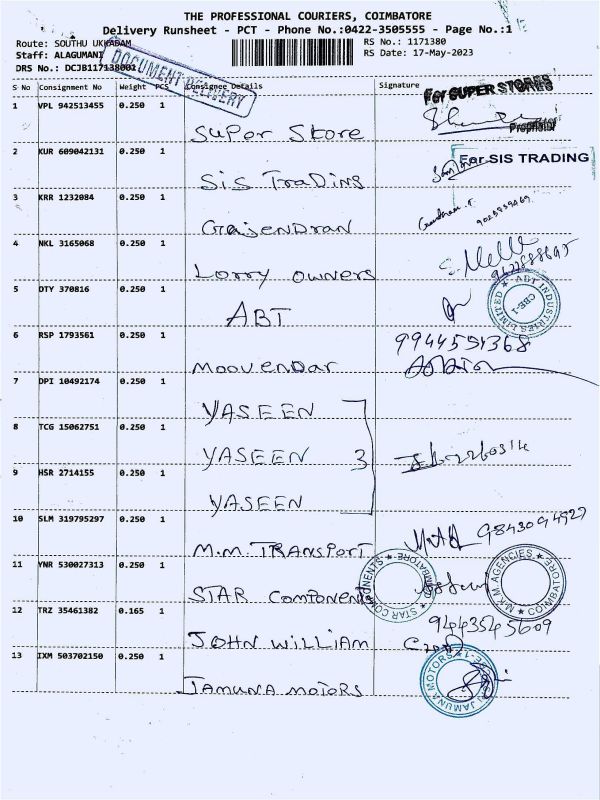 THE PROFESSIONAL COURIERS, COIMBATORE
Delivery Runsheet - PCT - Phone No.:0422-3505555 - Page No.:1
Route: SOUTHU UKKADAM
RS No.: 1171380
Staff: ALAGUMANI
RS Date: 17-May-2023
DRS No.: DCJB117138001
DOCUMENT DELIVERY
S No Consignment No Weight PCS Consignee Details Signature
For SUPER STORES
1 VPL 942513455 0.250 1
Super Store
Proprietor
2 KUR 609042131 0.250 1
For SIS TRADING
SiS TraDing
3 KRR 1232084 0.250 1
GajenDran
4 NKL 3165068 0.250 1
Lorry owners
5 DTY 370816 0.250 1
ABT
ABT INDUSTRIES LIMITED ★ CBE-1
6 RSP 1793561 0.250 1
Moovendar
7 DPI 10492174 0.250 1
YASEEN
8 TCG 15062751 0.250 1
YASEEN 3
9 HSR 2714155 0.250 1
YASEEN
10 SLM 319795297 0.250 1
M.M. TRANSPORT
9843094927
11 YNR 530027313 0.250 1
STAR Components
STAR COMPONENTS ★ COIMBATORE
M.K.M. AGENCIES ★ COIMBATORE
12 TRZ 35461382 0.165 1
JOHN WILLIAM
9443545609
13 IXM 503702150 0.250 1
JAMUNA MOTORS
JAMUNA MOTORS